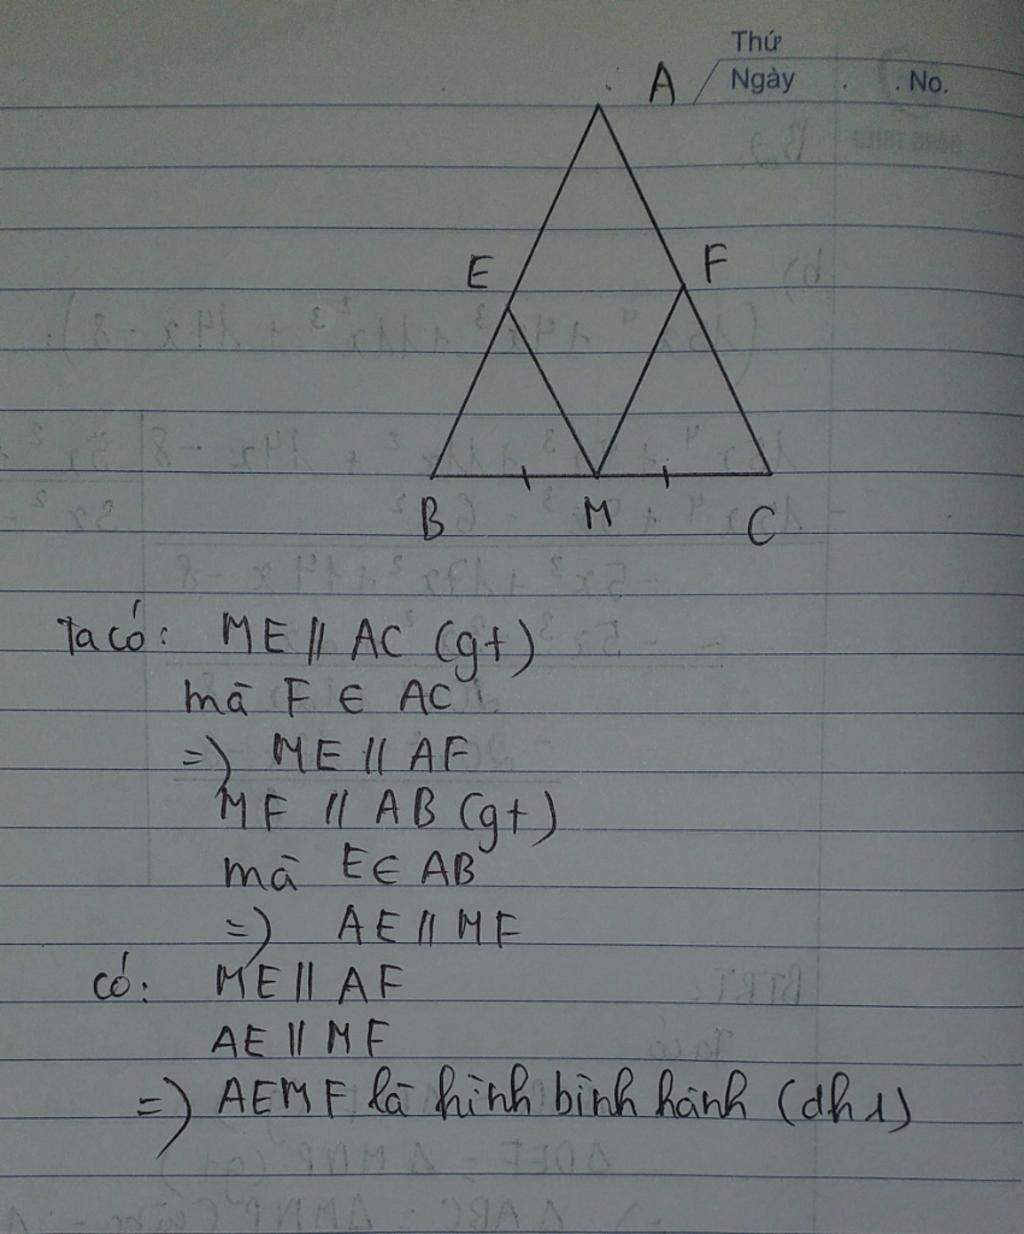 Thứ
Ngày . . No.
A
E F
B M C
Ta có: ME // AC (gt)
mà F ∈ AC
=) ME // AF
MF // AB (gt)
mà E ∈ AB
=) AE // MF
có: ME // AF
AE // MF
=) AEMF là hình bình hành (dh1)